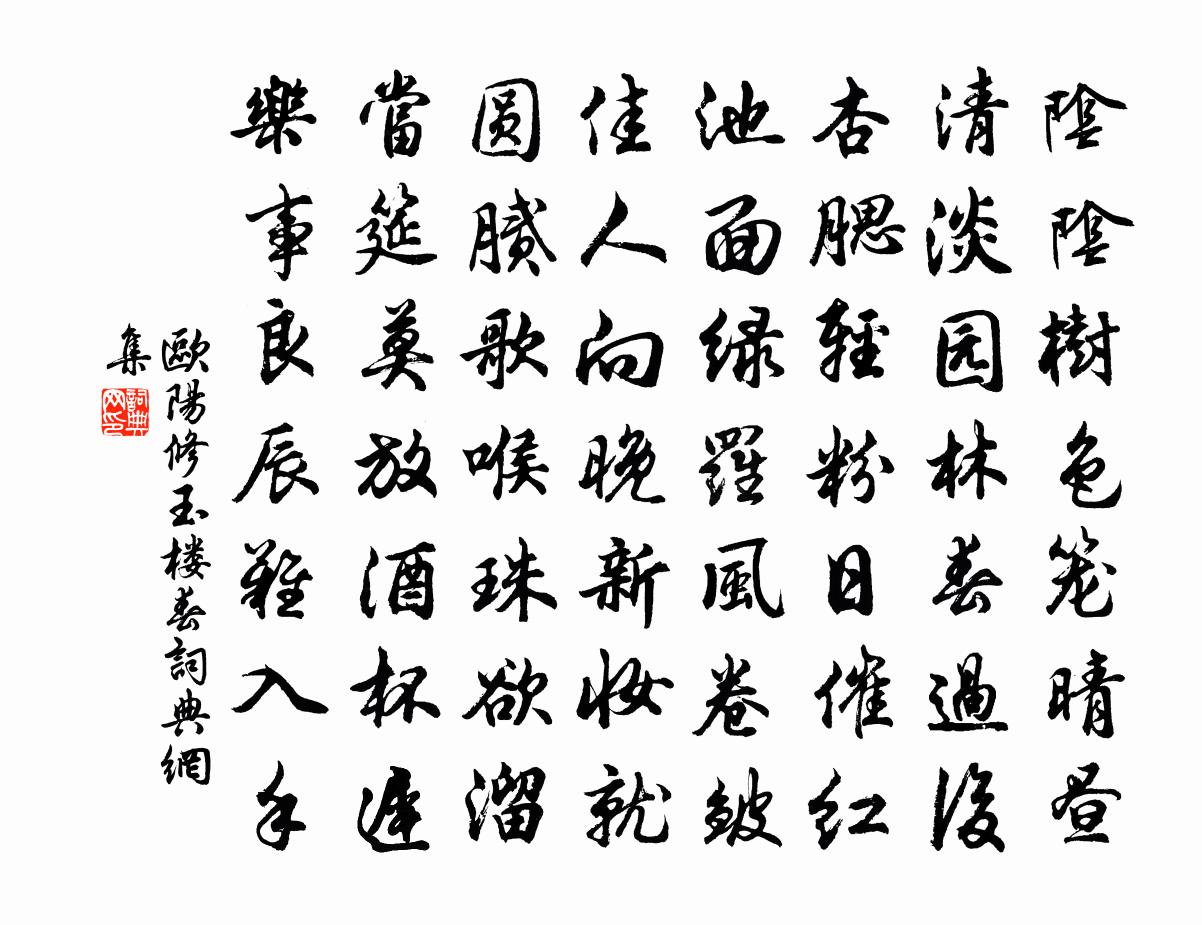 陰陰樹色笼晴昼
清淡园林春過後
杏腮輕粉日催红
池面绿羅風卷皱
佳人向晚新妝就
圆腻歌喉珠欲溜
當筵莫放酒杯遲
樂事良辰難入手
歐陽修玉楼春詞典網
集
詞典网印